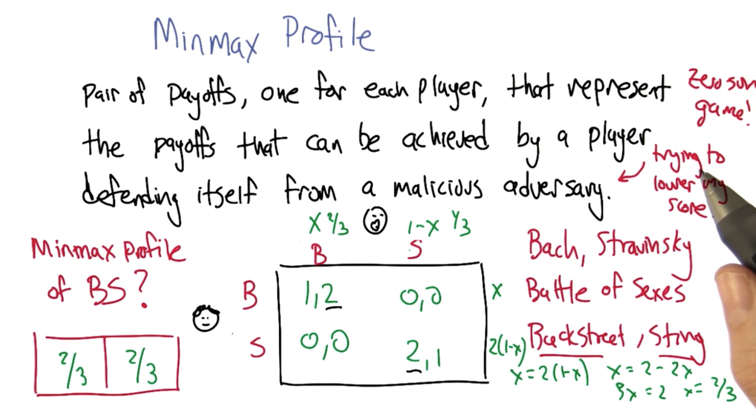 Minmax Profile
Pair of Payoffs, one for each player, that represent
the payoffs that can be achieved by a player
defending itself from a malicious adversary.
Zero sum
game!
trying to
lower my
score
Minmax Profile
of BS?
2/3 2/3
X 2/3 1-X 1/3
B S
B 1,2 0,0 X
S 0,0 2,1 2(1-x)
Bach, Stravinsky
Battle of Sexes
Backstreet, Sting
x = 2(1-x) x = 2-2x
3x = 2 x = 2/3